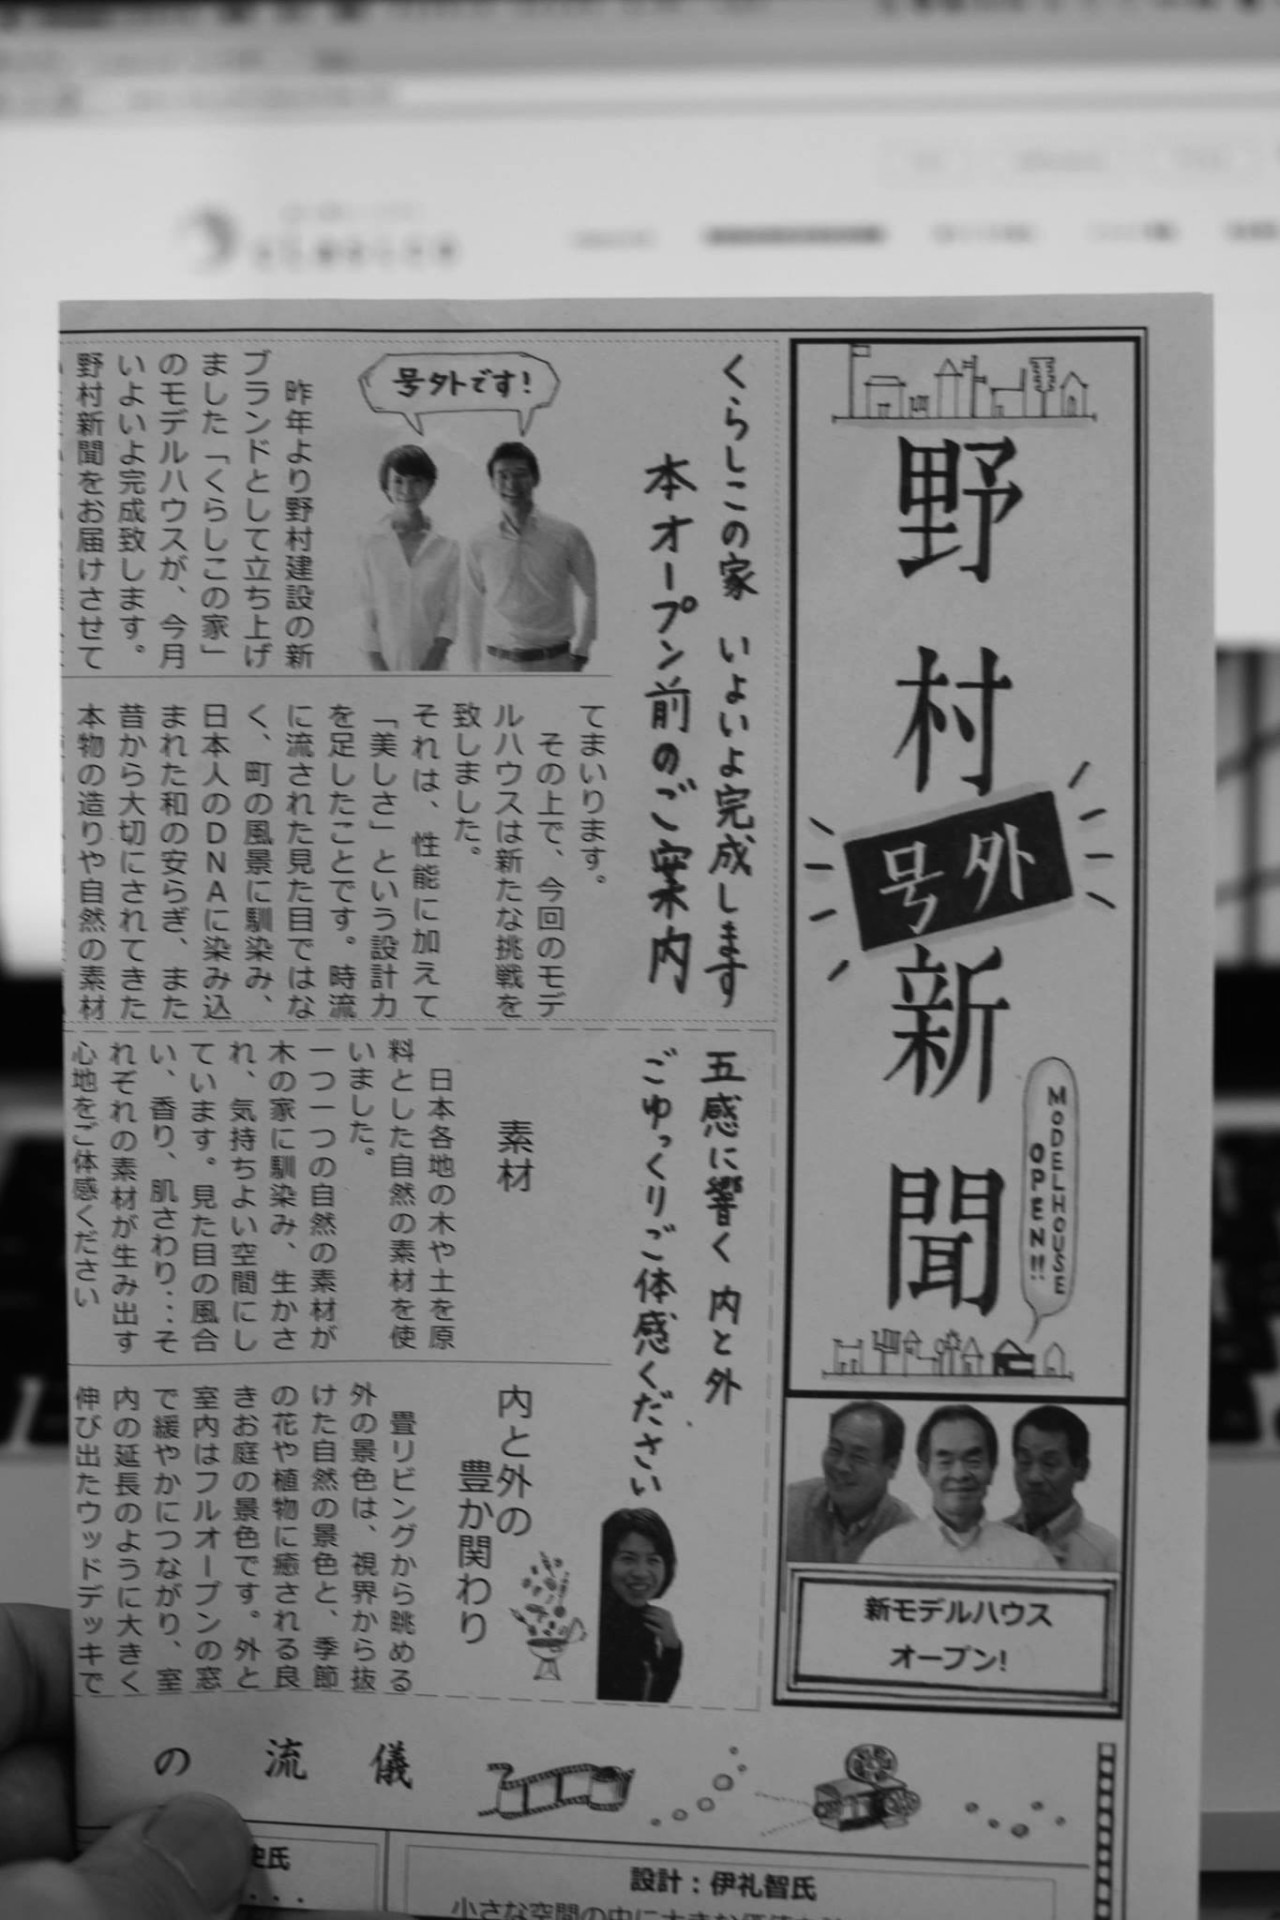 野村新聞
号外
MODELHOUSE
OPEN!!
新モデルハウス
オープン!
くらしこの家 いよいよ完成します
本オープン前のご案内
号外です!
昨年より野村建設の新
ブランドとして立ち上げ
ました「くらしこの家」
のモデルハウスが、今月
いよいよ完成致します。
野村新聞をお届けさせて
てまいります。
その上で、今回のモデ
ルハウスは新たな挑戦を
致しました。
それは、性能に加えて
「美しさ」という設計力
を足したことです。時流
に流された見た目ではな
く、町の風景に馴染み、
日本人のDNAに染み込
まれた和の安らぎ、また
昔から大切にされてきた
本物の造りや自然の素材
五感に響く 内と外
ごゆっくりご体感ください
素材
日本各地の木や土を原
料とした自然の素材を使
いました。
一つ一つの自然の素材が
木の家に馴染み、生かさ
れ、気持ちよい空間にし
ています。見た目の風合
い、香り、肌さわり…そ
れぞれの素材が生み出す
心地をご体感ください
内と外の
豊か関わり
畳リビングから眺める
外の景色は、視界から抜
けた自然の景色と、季節
の花や植物に癒される良
きお庭の景色です。外と
室内はフルオープンの窓
で緩やかにつながり、室
内の延長のように大きく
伸び出たウッドデッキで
の流儀
史氏
設計：伊礼智氏
小さな空間の中に大きな価値を